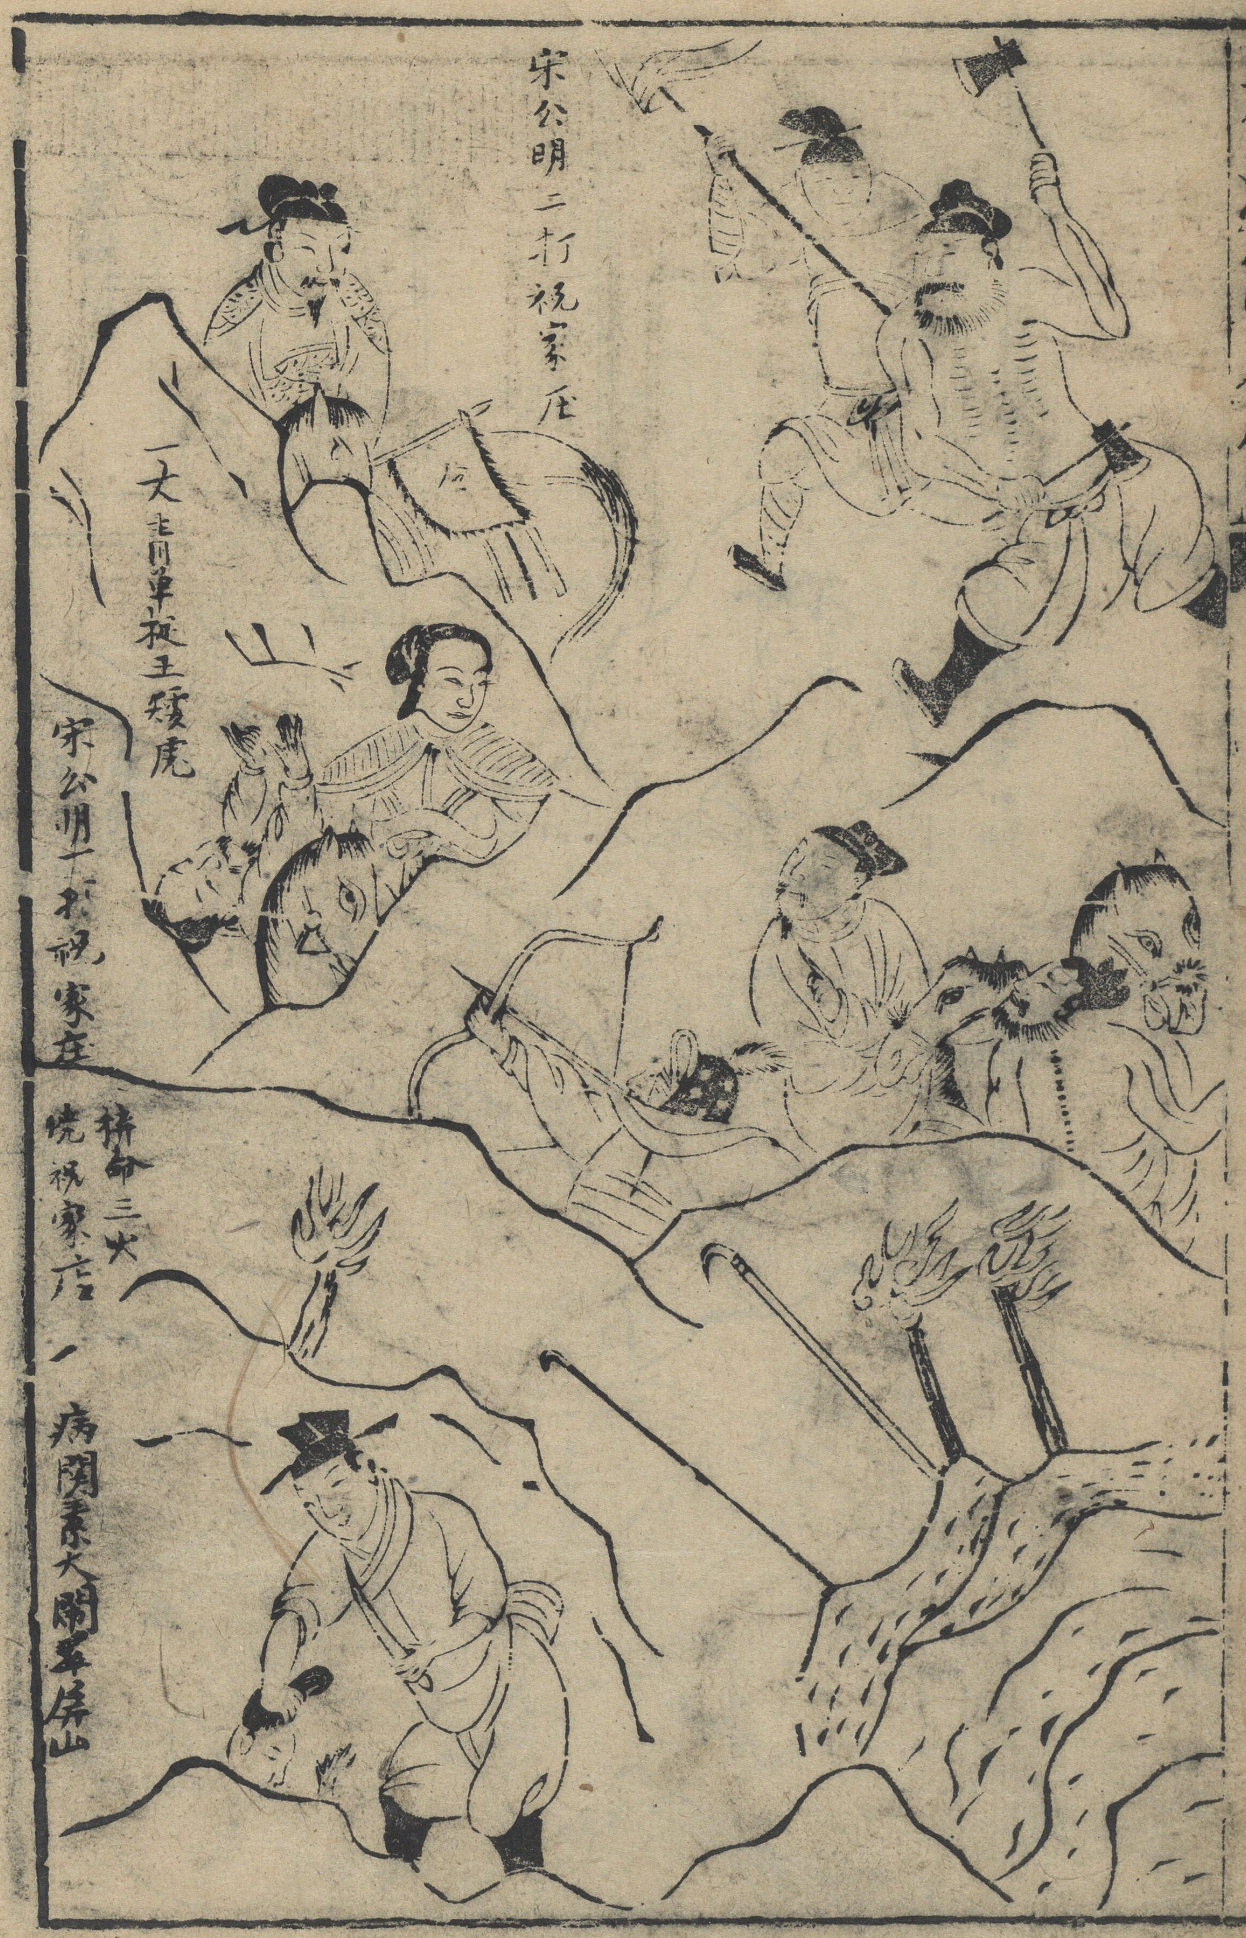 宋公明二打祝家庄
一丈青单捉王矮虎
宋公明一打祝家庄
拚命三火
烧祝家店
病関索大閙翠屏山